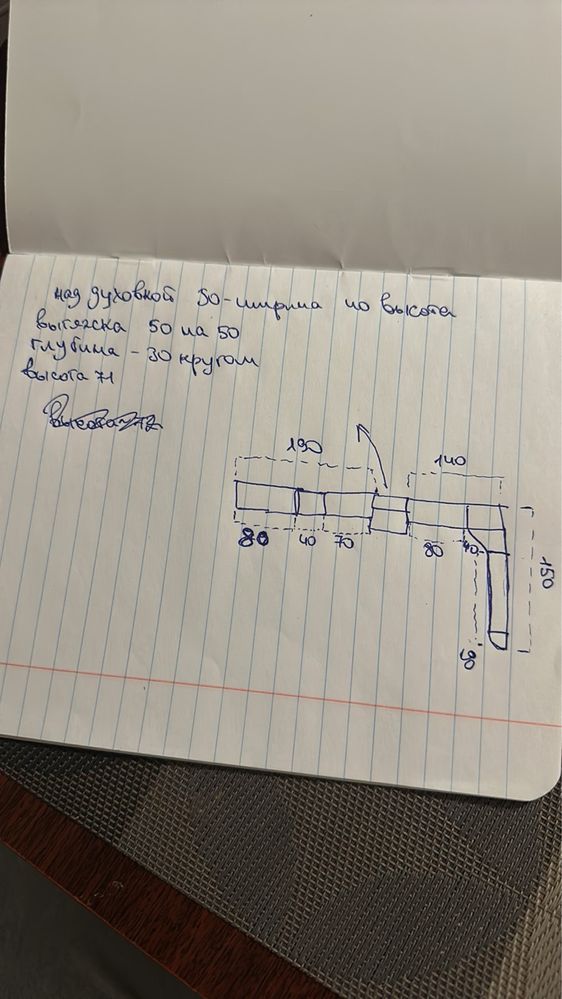 над духовкой 50-ширина но высота
вытяжка 50 на 50
глубина - 30 кругом
высота 71
190
140
80
40
70
80
40
150
90